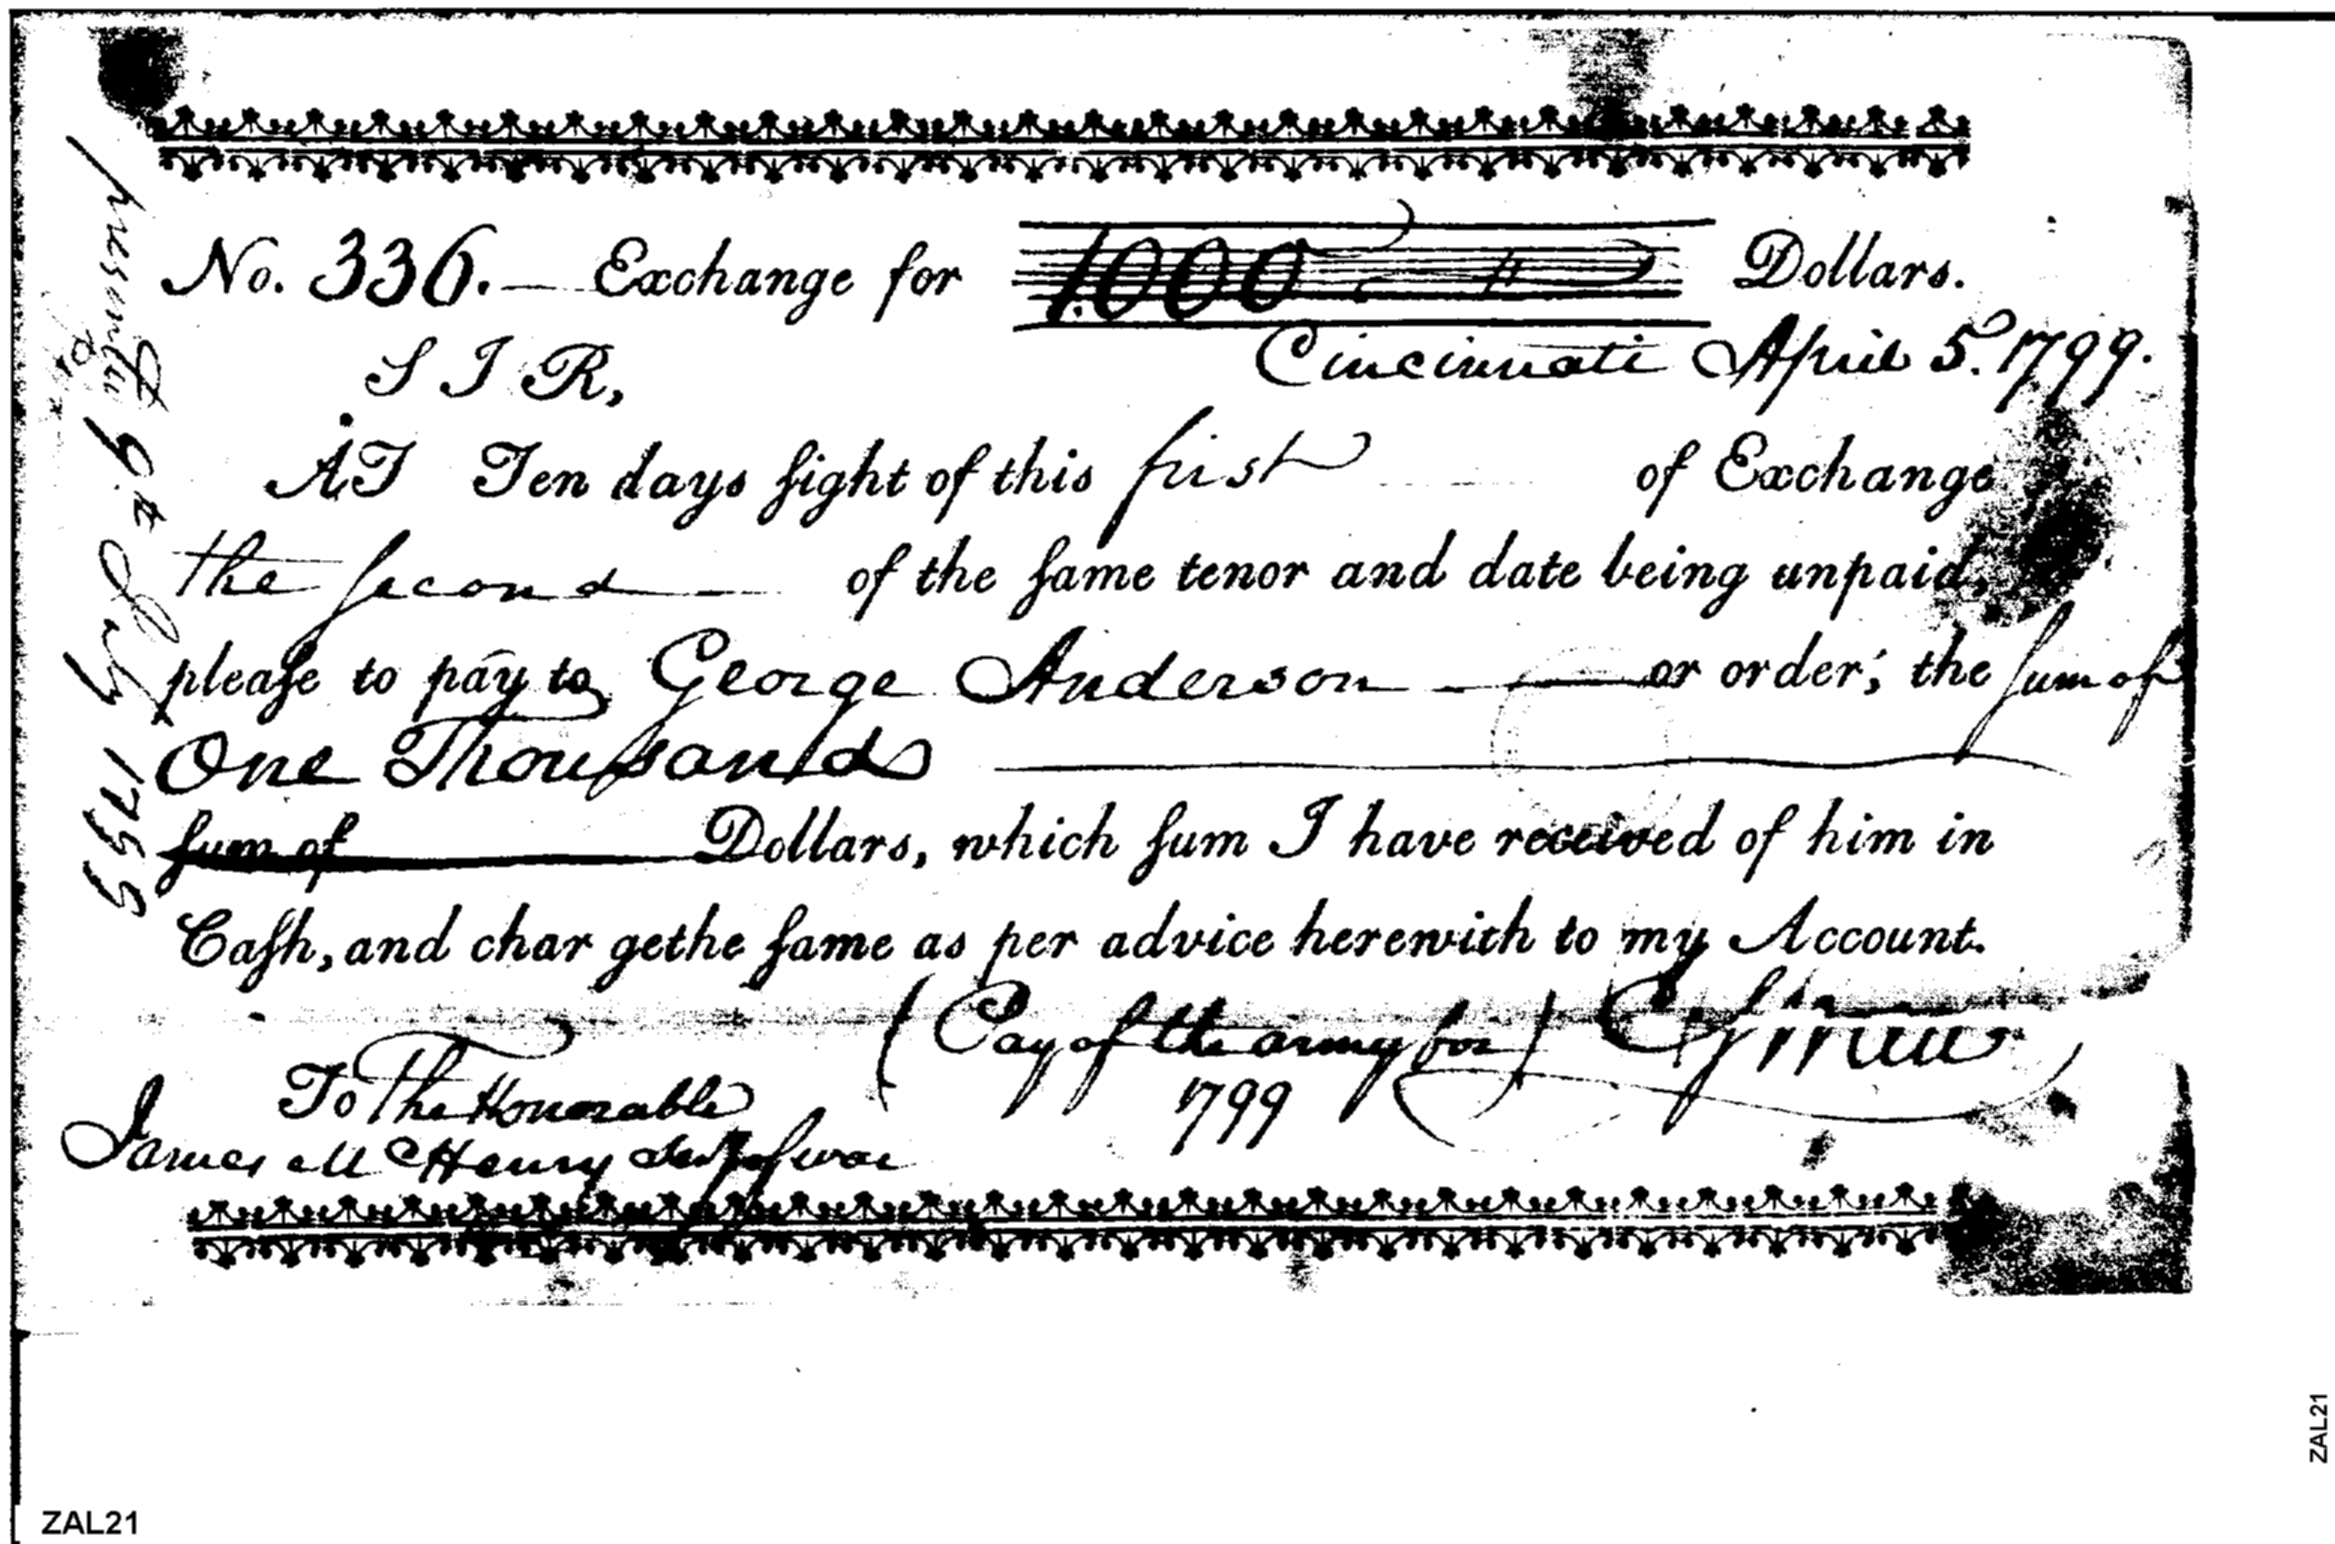 No. 336. — Exchange for 1.000 Dollars.
Cincinnati April 5. 1799.
SIR,
AT Ten days ſight of this first of Exchange
the ſecond of the ſame tenor and date being unpaid,
pleaſe to pay to George Anderson — or order; the ſum of
One Thouſand
ſum of Dollars, which ſum I have received of him in
Caſh, and char gethe ſame as per advice herewith to my Account.
(Pay of the army for
1799
To The Honorable
James McHenry of war
1799
ZAL21
ZAL21